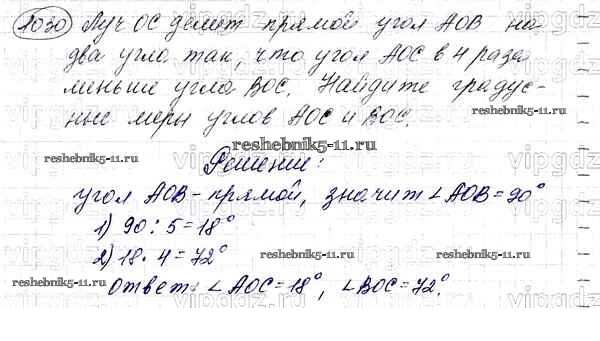 1030 Луч ОС делит прямой угол АОВ на
два угла так, что угол АОС в 4 раза
меньше угла ВОС. Найдите градус-
ные меры углов АОС и ВОС.
reshebnik5-11.ru
reshebnik5-11.ru
reshebnik5-11.ru
Решение:
vipgdz
угол АОВ - прямой, значит ∠АОВ = 90°
1) 90 : 5 = 18°
2) 18 · 4 = 72°
reshebnik5-11.ru
reshebnik5-11.ru
reshebnik5-11.ru
ответ: ∠АОС = 18°, ∠ВОС = 72°.